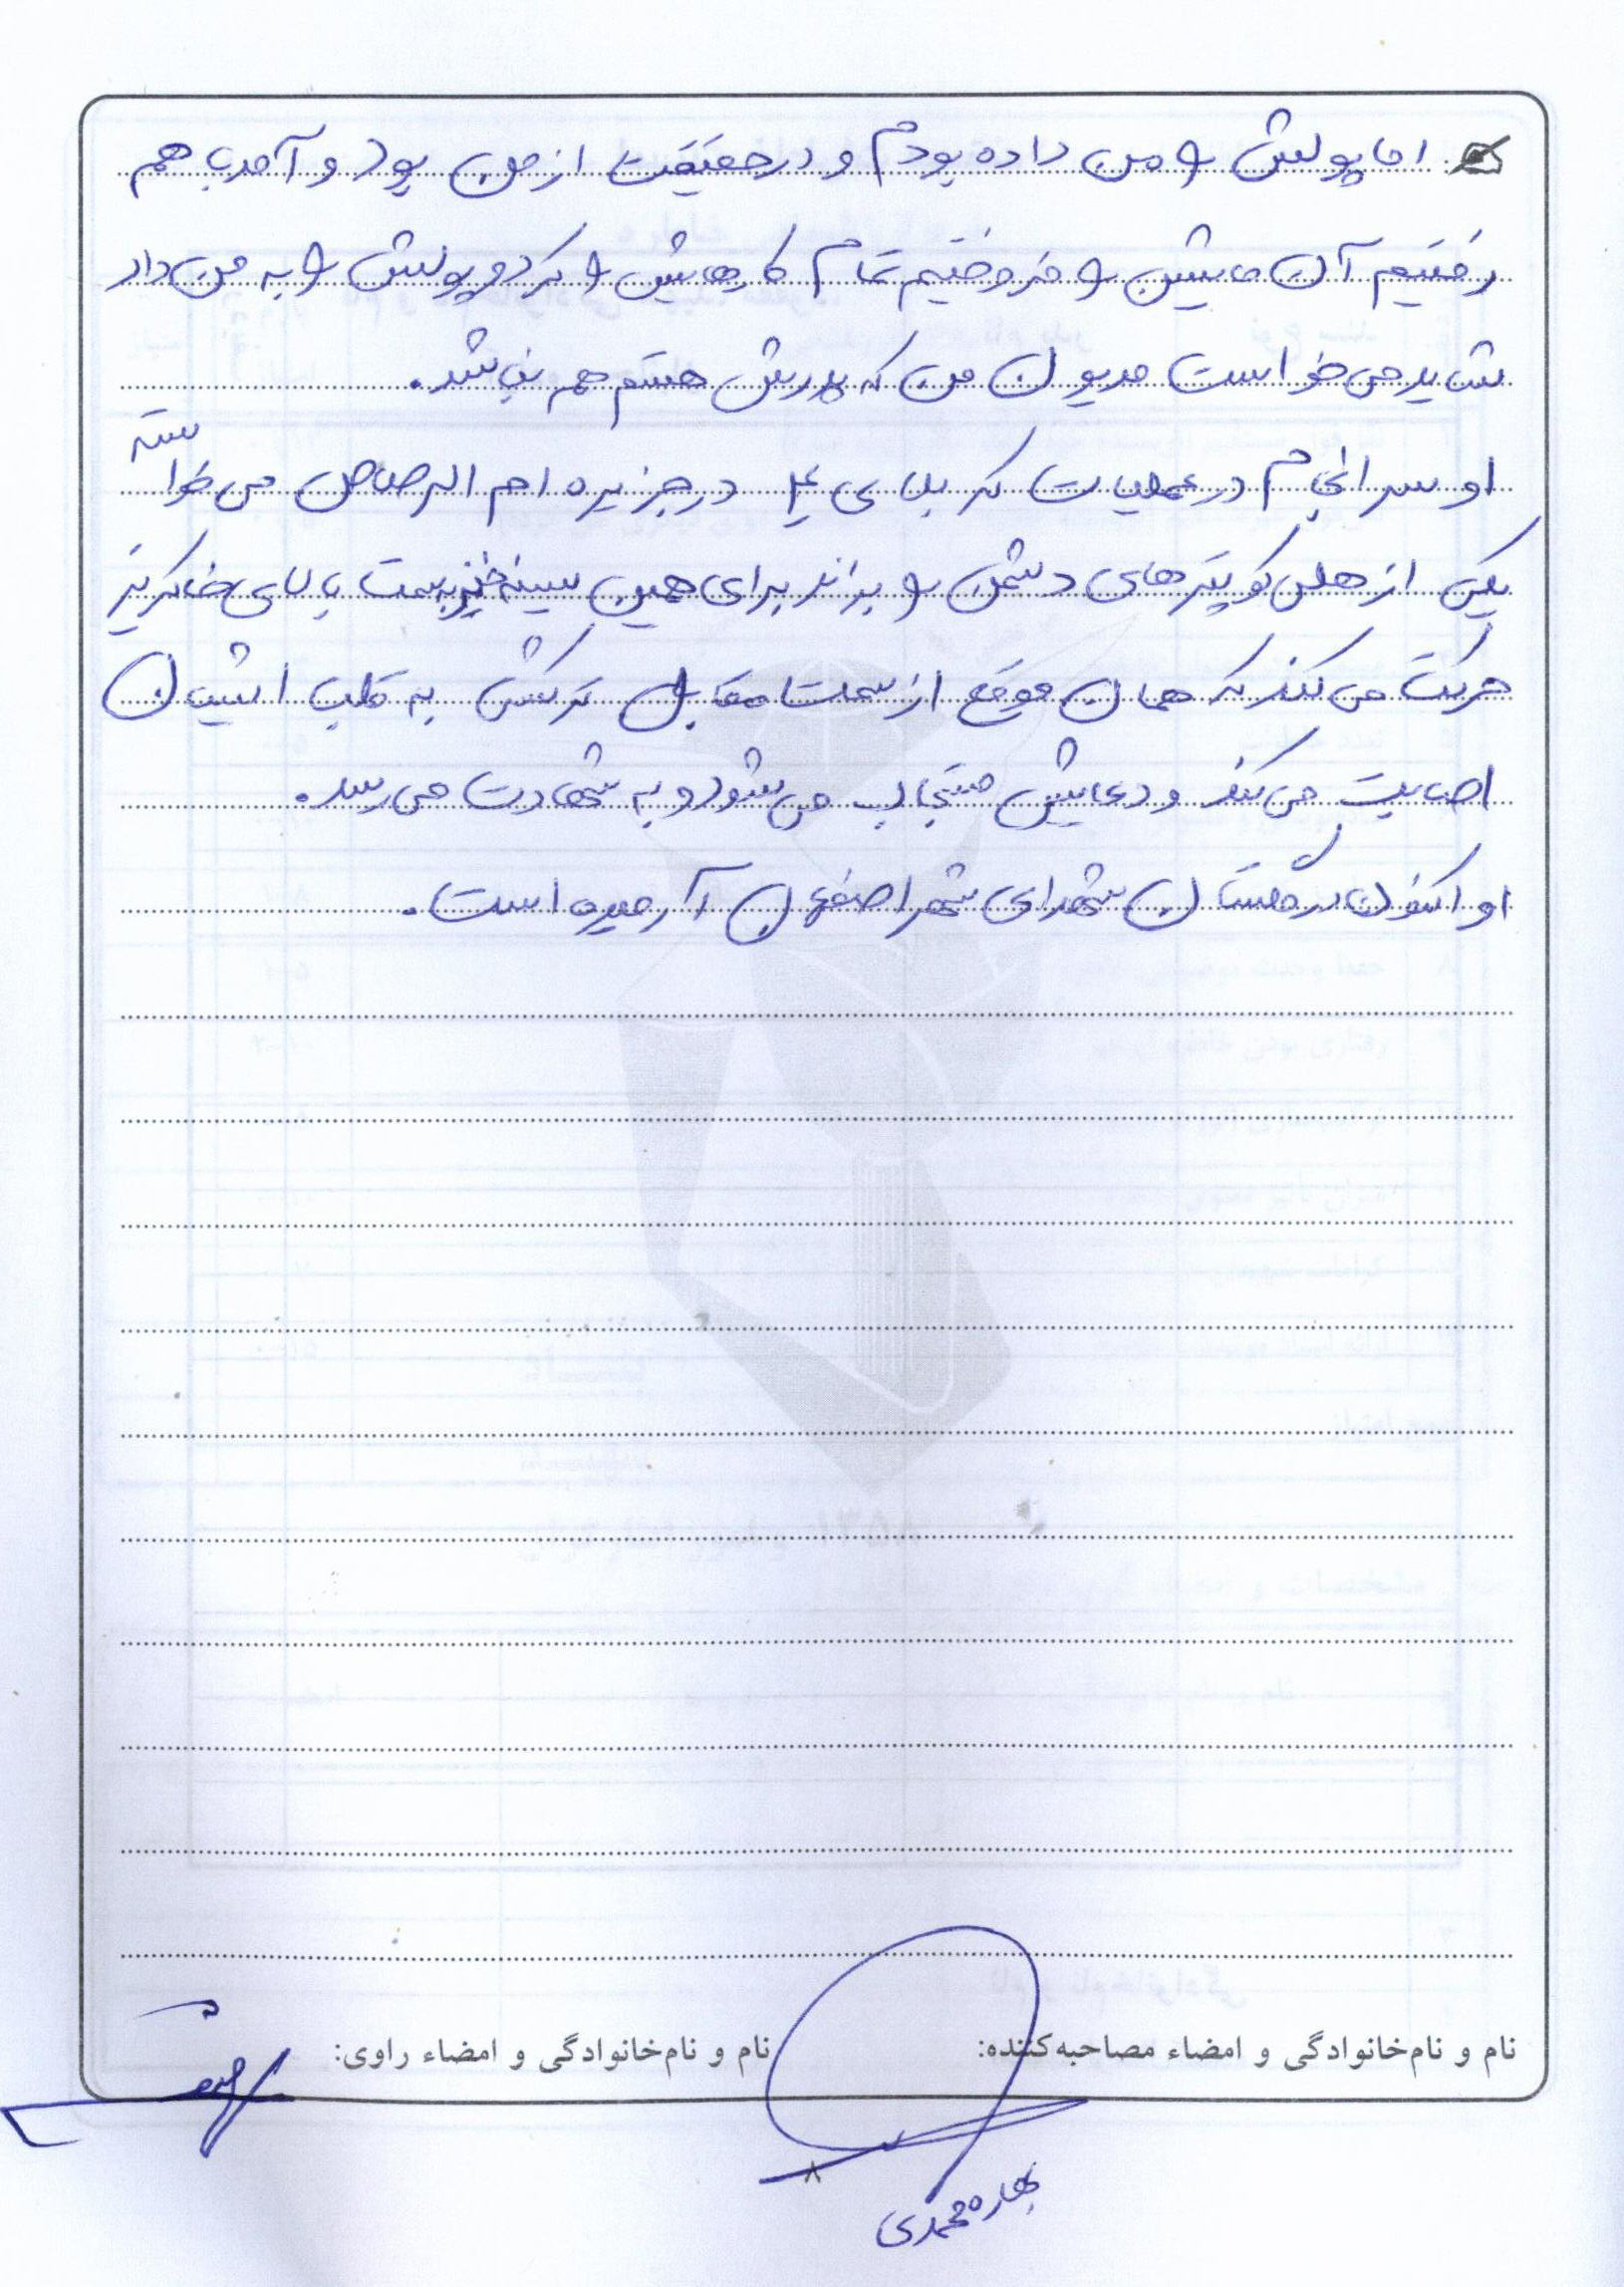 اما پولش را من داده بودم و در حقیقت از من بود و آمدیم هم
رفتیم آن ماشین را فروختیم تمام کارهایش را کرد و پولش را به من داد
شاید می‌خواست مدیون من که پدرش هستم هم نباشد.
او سرانجام در عملیات کربلای ۴ در جزیره ام الرصاص می‌خواسته
یکی از هلی‌کوپترهای دشمن را بزند برای همین سینه‌خیز به سمت بالای خاکریز
حرکت می‌کند که همان موقع از سمت مقابل ترکش به قلب ایشان
اصابت می‌کند و دعایش مستجاب می‌شود و به شهادت می‌رسد.
او اکنون در گلستان شهدای شهر اصفهان آرمیده است.
نام و نام‌خانوادگی و امضاء مصاحبه‌کننده: نام و نام‌خانوادگی و امضاء راوی:
۸
بهاره محمدی